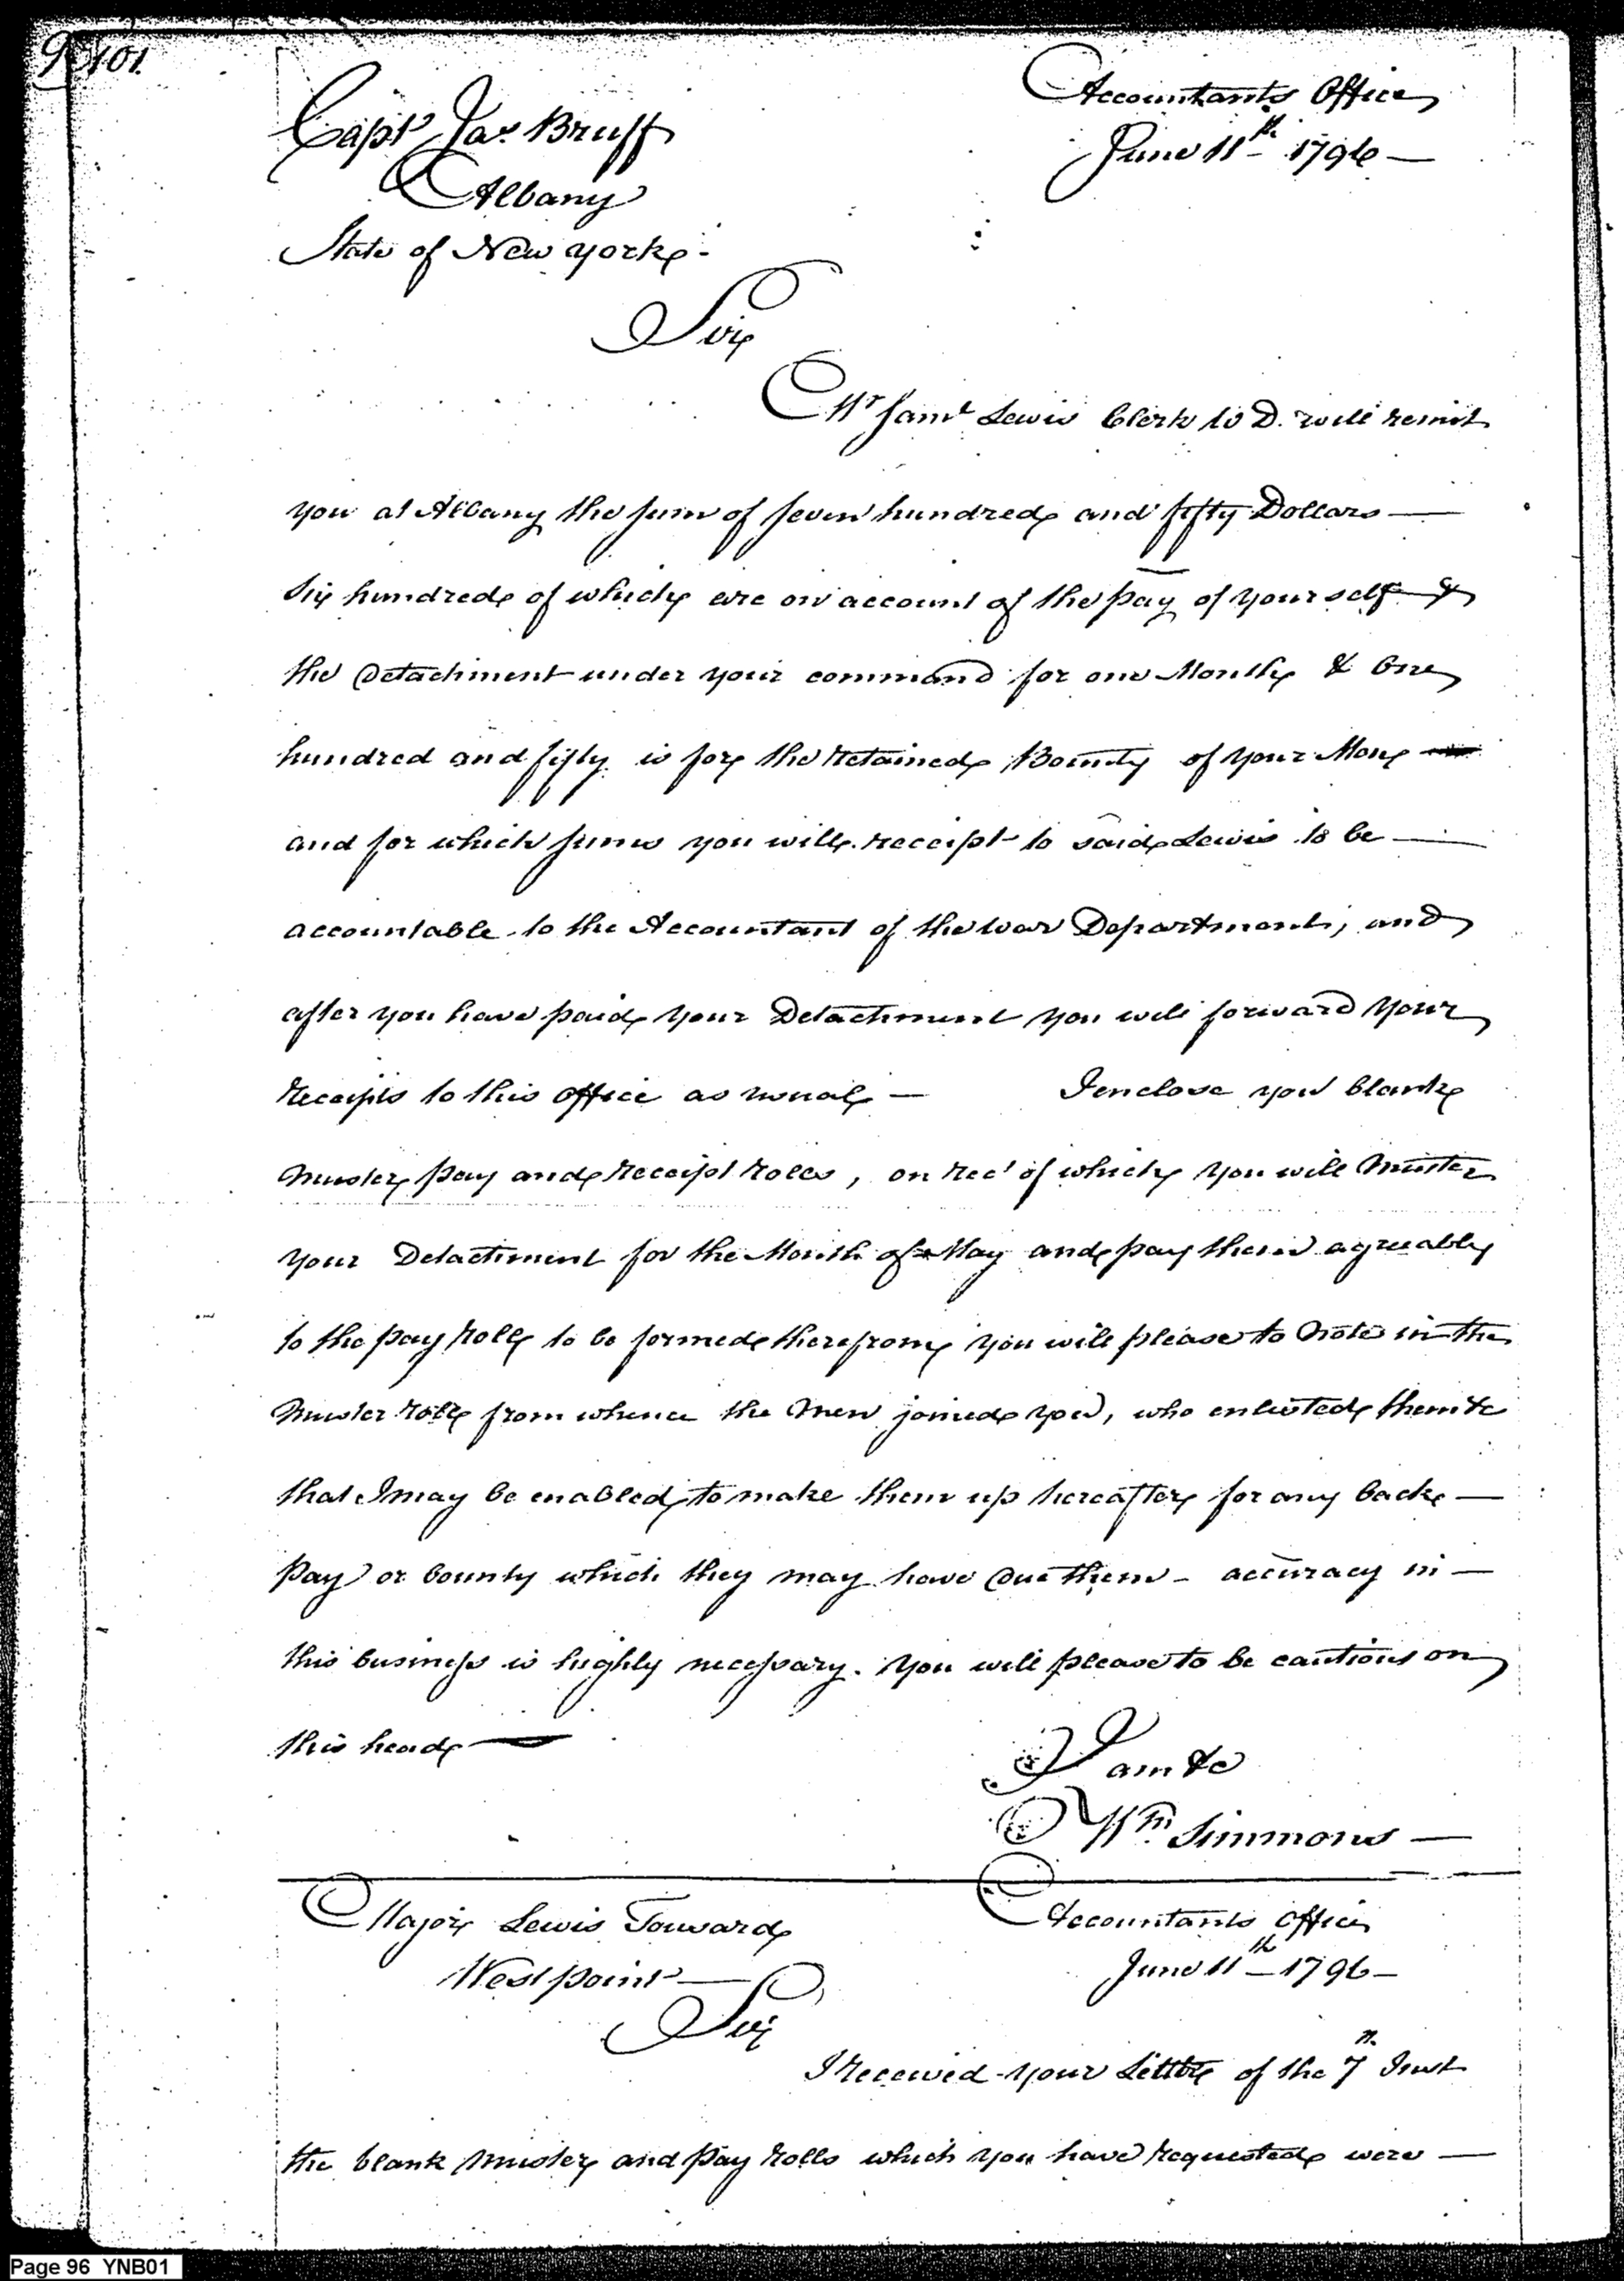 101.
Accountants Office
Capt Jas Bruff
June 11th 1796 —
Albany
State of New york -
Sir
Mr Saml Lewis Clerk to D. will remit
you at Albany the sum of seven hundred and fifty Dollars —
six hundred of which are on account of the pay of yourself &
the Detachment under your command for one Month & One
hundred and fifty is for the retained Bounty of your Men
and for which sums you will receipt to said Lewis to be —
accountable to the Accountant of the war Department, and
after you have paid your Detachment you will forward your
receipts to this office as usual — I enclose you blank
Muster pay and receipt rolls, on rect of which you will Muster
your Detachment for the Month of May and pay them agreably
to the pay roll to be formed therefrom you will please to Note in the
Muster roll from whence the Men joined you, who enlisted them &c
that I may be enabled to make them up hereafter for any back —
Pay or bounty which they may have due them - accuracy in —
this business is highly necessary. You will please to be cautious on
this head —
I am &c
Wm Simmons —
Major Lewis Tousard
Accountants office
West point —
June 11th — 1796 —
Sir
I received your Letter of the 7th Inst
the blank Muster and Pay rolls which you have requested were —
Page 96 YNB01